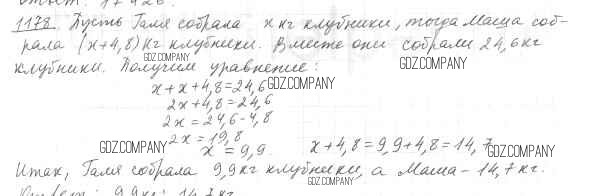 Ответ: 17426.
1178. Пусть Галя собрала x кг клубники, тогда Маша соб-
рала (x+4,8) кг клубники. Вместе они собрали 24,6 кг
клубники. Получим уравнение:
GDZ.COMPANY
GDZ.COMPANY
x + x + 4,8 = 24,6
GDZ.COMPANY
2x + 4,8 = 24,6
2x = 24,6 - 4,8
2x = 19,8
GDZ.COMPANY
x = 9,9.
x + 4,8 = 9,9 + 4,8 = 14,7
GDZ.COMPANY
Итак, Галя собрала 9,9 кг клубники, а Маша - 14,7 кг.
GDZ.COMPANY
Ответ: 9,9 кг; 14,7 кг